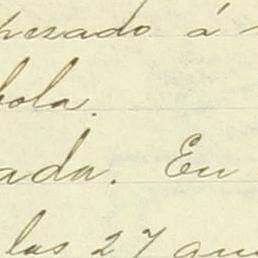 pezado á
bola.
ada. En
las 27 an